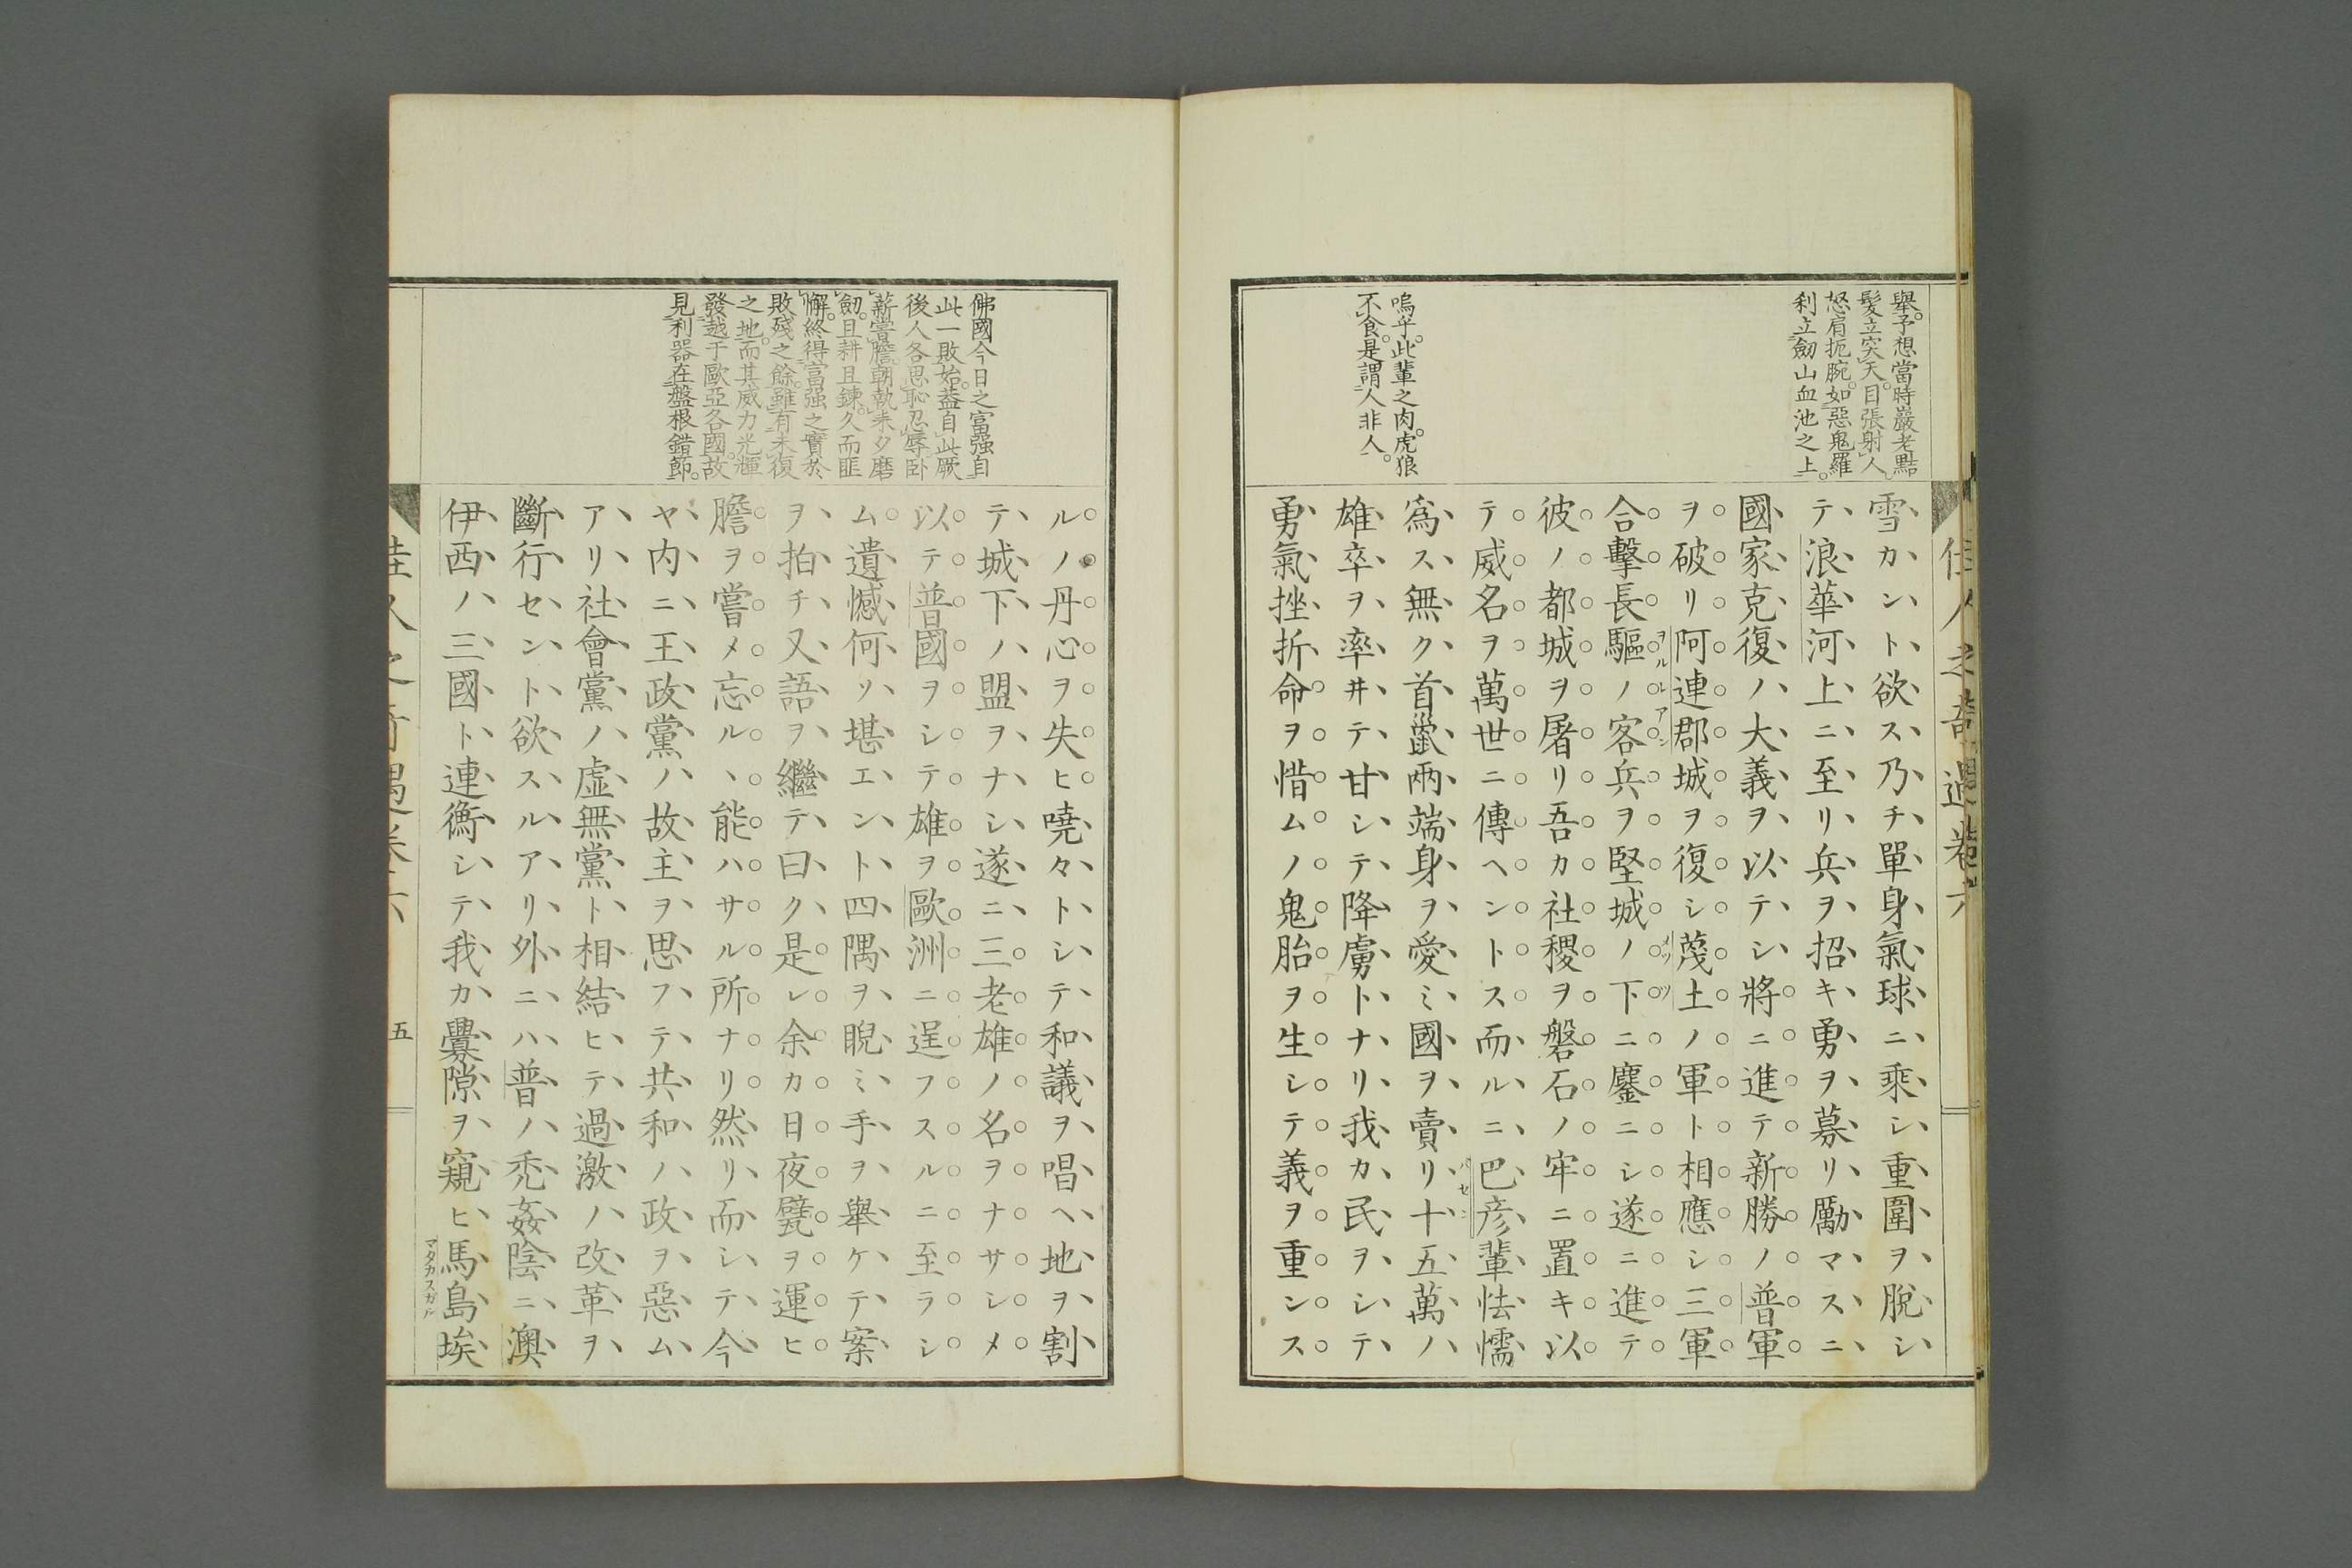 舉。予想當時巖老點
髮立突天。目張射人。
怒肩扼腕。如惡鬼羅
利立劔山血池之上。
嗚乎。此輩之肉。虎狼
不食。是謂人非人。
佳人之奇遇卷六
雪カント欲ス乃チ單身氣球ニ乘シ重圍ヲ脫シ
テ浪華河上ニ至リ兵ヲ招キ勇ヲ募リ勵マスニ
國家克復ノ大義ヲ以テシ將ニ進テ新勝ノ普軍
ヲ破リ阿連郡城ヲ復シ蔑土ノ軍ト相應シ三軍
ヲルレアン
メッツ
合擊長驅ノ客兵ヲ堅城ノ下ニ鏖ニシ遂ニ進テ
彼ノ都城ヲ屠リ吾カ社稷ヲ磐石ノ牢ニ置キ以
テ威名ヲ萬世ニ傳ヘントス而ルニ巴彥輩怯懦
バセン
爲ス無ク首鼠兩端身ヲ愛ミ國ヲ賣リ十五萬ノ
雄卒ヲ率井テ甘シテ降虜トナリ我カ民ヲシテ
勇氣挫折命ヲ惜ムノ鬼胎ヲ生シテ義ヲ重ンス
佛國今日之富强自
此一敗始。蓋自此厥
後人各思恥忍辱臥
薪嘗膽。朝執耒夕磨
劔。且耕且鍊。久而匪
懈。終得富强之實於
敗殘之餘。雖有未復
之地。而其威力光輝
發越于歐亞各國。故
見利器在盤根錯節。
ルノ丹心ヲ失ヒ嘵々トシテ和議ヲ唱ヘ地ヲ割
テ城下ノ盟ヲナシ遂ニ三老雄ノ名ヲナサシメ
以テ普國ヲシテ雄ヲ歐洲ニ逞フスルニ至ラシ
ム遺憾何ソ堪エント四隅ヲ睨ミ手ヲ舉ケテ案
ヲ拍チ又語ヲ繼テ曰ク是レ余カ日夜甓ヲ運ヒ
膽ヲ嘗メ忘ルヽ能ハサル所ナリ然リ而シテ今
ヤ內ニ王政黨ノ故主ヲ思フテ共和ノ政ヲ惡ム
アリ社會黨ノ虛無黨ト相結ヒテ過激ノ改革ヲ
斷行セント欲スルアリ外ニハ普ノ禿姦陰ニ澳
伊西ノ三國ト連衡シテ我カ釁隙ヲ窺ヒ馬島埃
マタカスガル
佳人之奇遇卷六
五